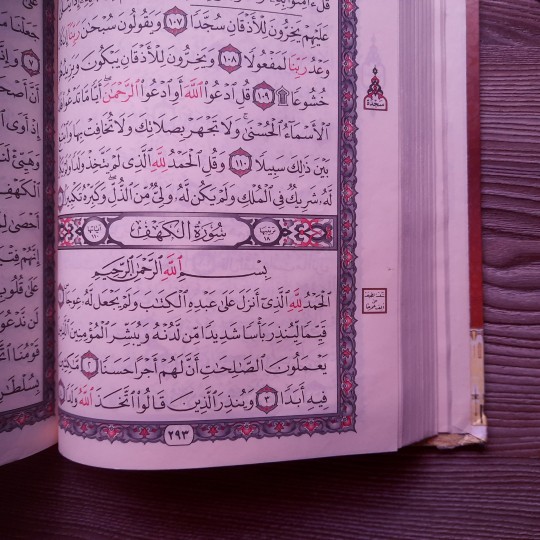 عَلَيْهِمْ يَخِرُّونَ لِلْأَذْقَانِ سُجَّدًا ١٠٧ وَيَقُولُونَ سُبْحَٰنَ رَبِّنَآ إِن كَانَ
وَعْدُ رَبِّنَا لَمَفْعُولًا ١٠٨ وَيَخِرُّونَ لِلْأَذْقَانِ يَبْكُونَ وَيَزِيدُهُمْ
خُشُوعًا ۩ ١٠٩ قُلِ ٱدْعُوا۟ ٱللَّهَ أَوِ ٱدْعُوا۟ ٱلرَّحْمَٰنَ ۖ أَيًّا مَّا تَدْعُوا۟
ٱلْأَسْمَآءُ ٱلْحُسْنَىٰ ۚ وَلَا تَجْهَرْ بِصَلَاتِكَ وَلَا تُخَافِتْ بِهَا وَٱبْتَغِ
بَيْنَ ذَٰلِكَ سَبِيلًا ١١٠ وَقُلِ ٱلْحَمْدُ لِلَّهِ ٱلَّذِى لَمْ يَتَّخِذْ وَلَدًا وَلَمْ
لَّهُۥ شَرِيكٌ فِى ٱلْمُلْكِ وَلَمْ يَكُن لَّهُۥ وَلِىٌّ مِّنَ ٱلذُّلِّ ۖ وَكَبِّرْهُ تَكْبِيرًۢا
ترتيبها ١٨ سُورَةُ الكَهْفِ آياتها ١١٠
بِسْمِ ٱللَّهِ ٱلرَّحْمَٰنِ ٱلرَّحِيمِ
ٱلْحَمْدُ لِلَّهِ ٱلَّذِىٓ أَنزَلَ عَلَىٰ عَبْدِهِ ٱلْكِتَٰبَ وَلَمْ يَجْعَل لَّهُۥ عِوَجَا
قَيِّمًا لِّيُنذِرَ بَأْسًا شَدِيدًا مِّن لَّدُنْهُ وَيُبَشِّرَ ٱلْمُؤْمِنِينَ ٱلَّذِينَ
يَعْمَلُونَ ٱلصَّٰلِحَٰتِ أَنَّ لَهُمْ أَجْرًا حَسَنًا ٢ مَّٰكِثِينَ
فِيهِ أَبَدًا ٣ وَيُنذِرَ ٱلَّذِينَ قَالُوا۟ ٱتَّخَذَ ٱللَّهُ وَلَدًا
٢٩٣
سَجْدَة
جَعَلْنَا مَا
٧ وَإِذ
أَنَّ أَصْحَ
إِذْ أَوَى
وَهَيِّئْ لَنَا
ٱلْكَهْفِ
أَحْصَىٰ
إِنَّهُمْ فِتْيَ
عَلَىٰ قُلُوبِ
لَن نَّدْعُوَا۟
قَوْمُنَا
بِسُلْطَٰنٍ